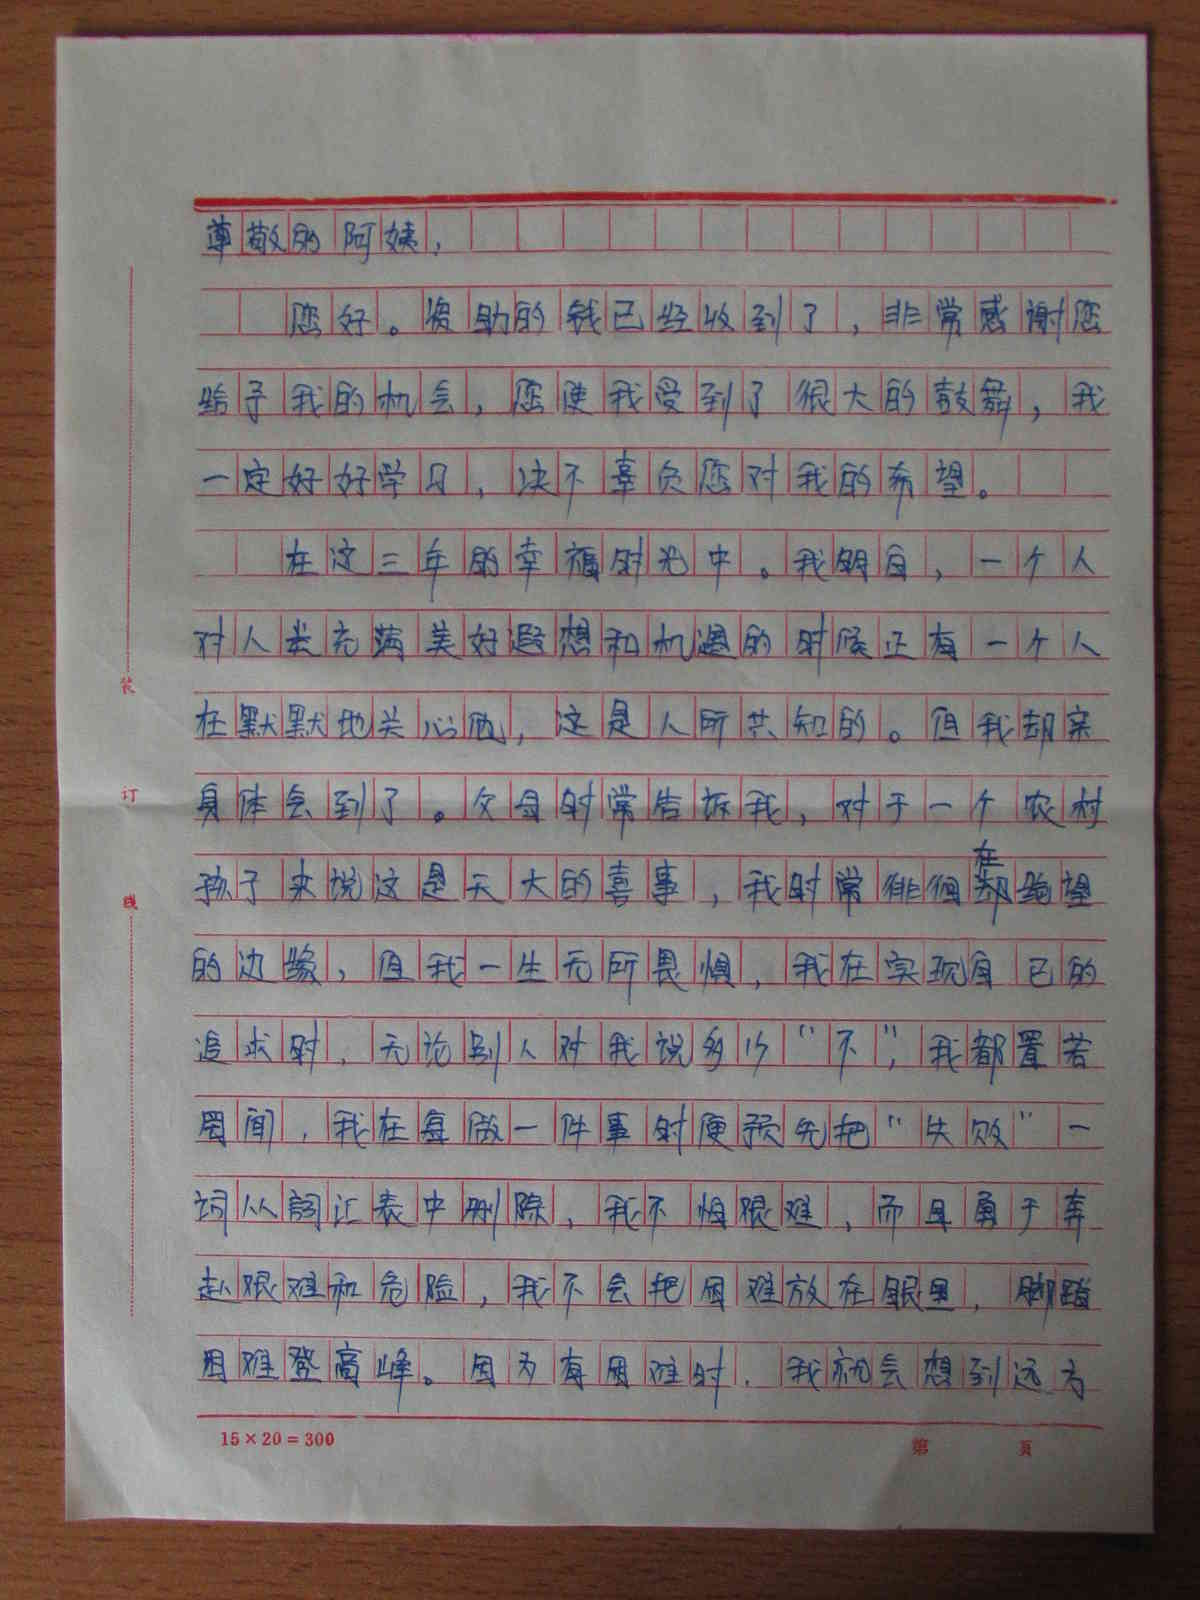 尊敬的阿姨，
您好。资助的钱已经收到了，非常感谢您
给予我的机会，您使我受到了很大的鼓舞，我
一定好好学习，决不辜负您对我的希望。
在这三年的幸福时光中。我明白，一个人
对人类充满美好遐想和机遇的时候正有一个人
在默默地关心他，这是人所共知的。但我却亲
身体会到了。父母时常告诉我，对于一个农村
孩子来说这是天大的喜事，我时常徘徊在却绝望
的边缘，但我一生无所畏惧，我在实现自己的
追求时，无论别人对我说多少“不”，我都置若
罔闻，我在每做一件事时便预先把“失败”一
词从词汇表中删除，我不怕艰难，而且勇于奔
赴艰难和危险，我不会把困难放在眼里，脚踏
困难登高峰。因为有困难时．我就会想到远方
装
订
线
15×20＝300
第 頁